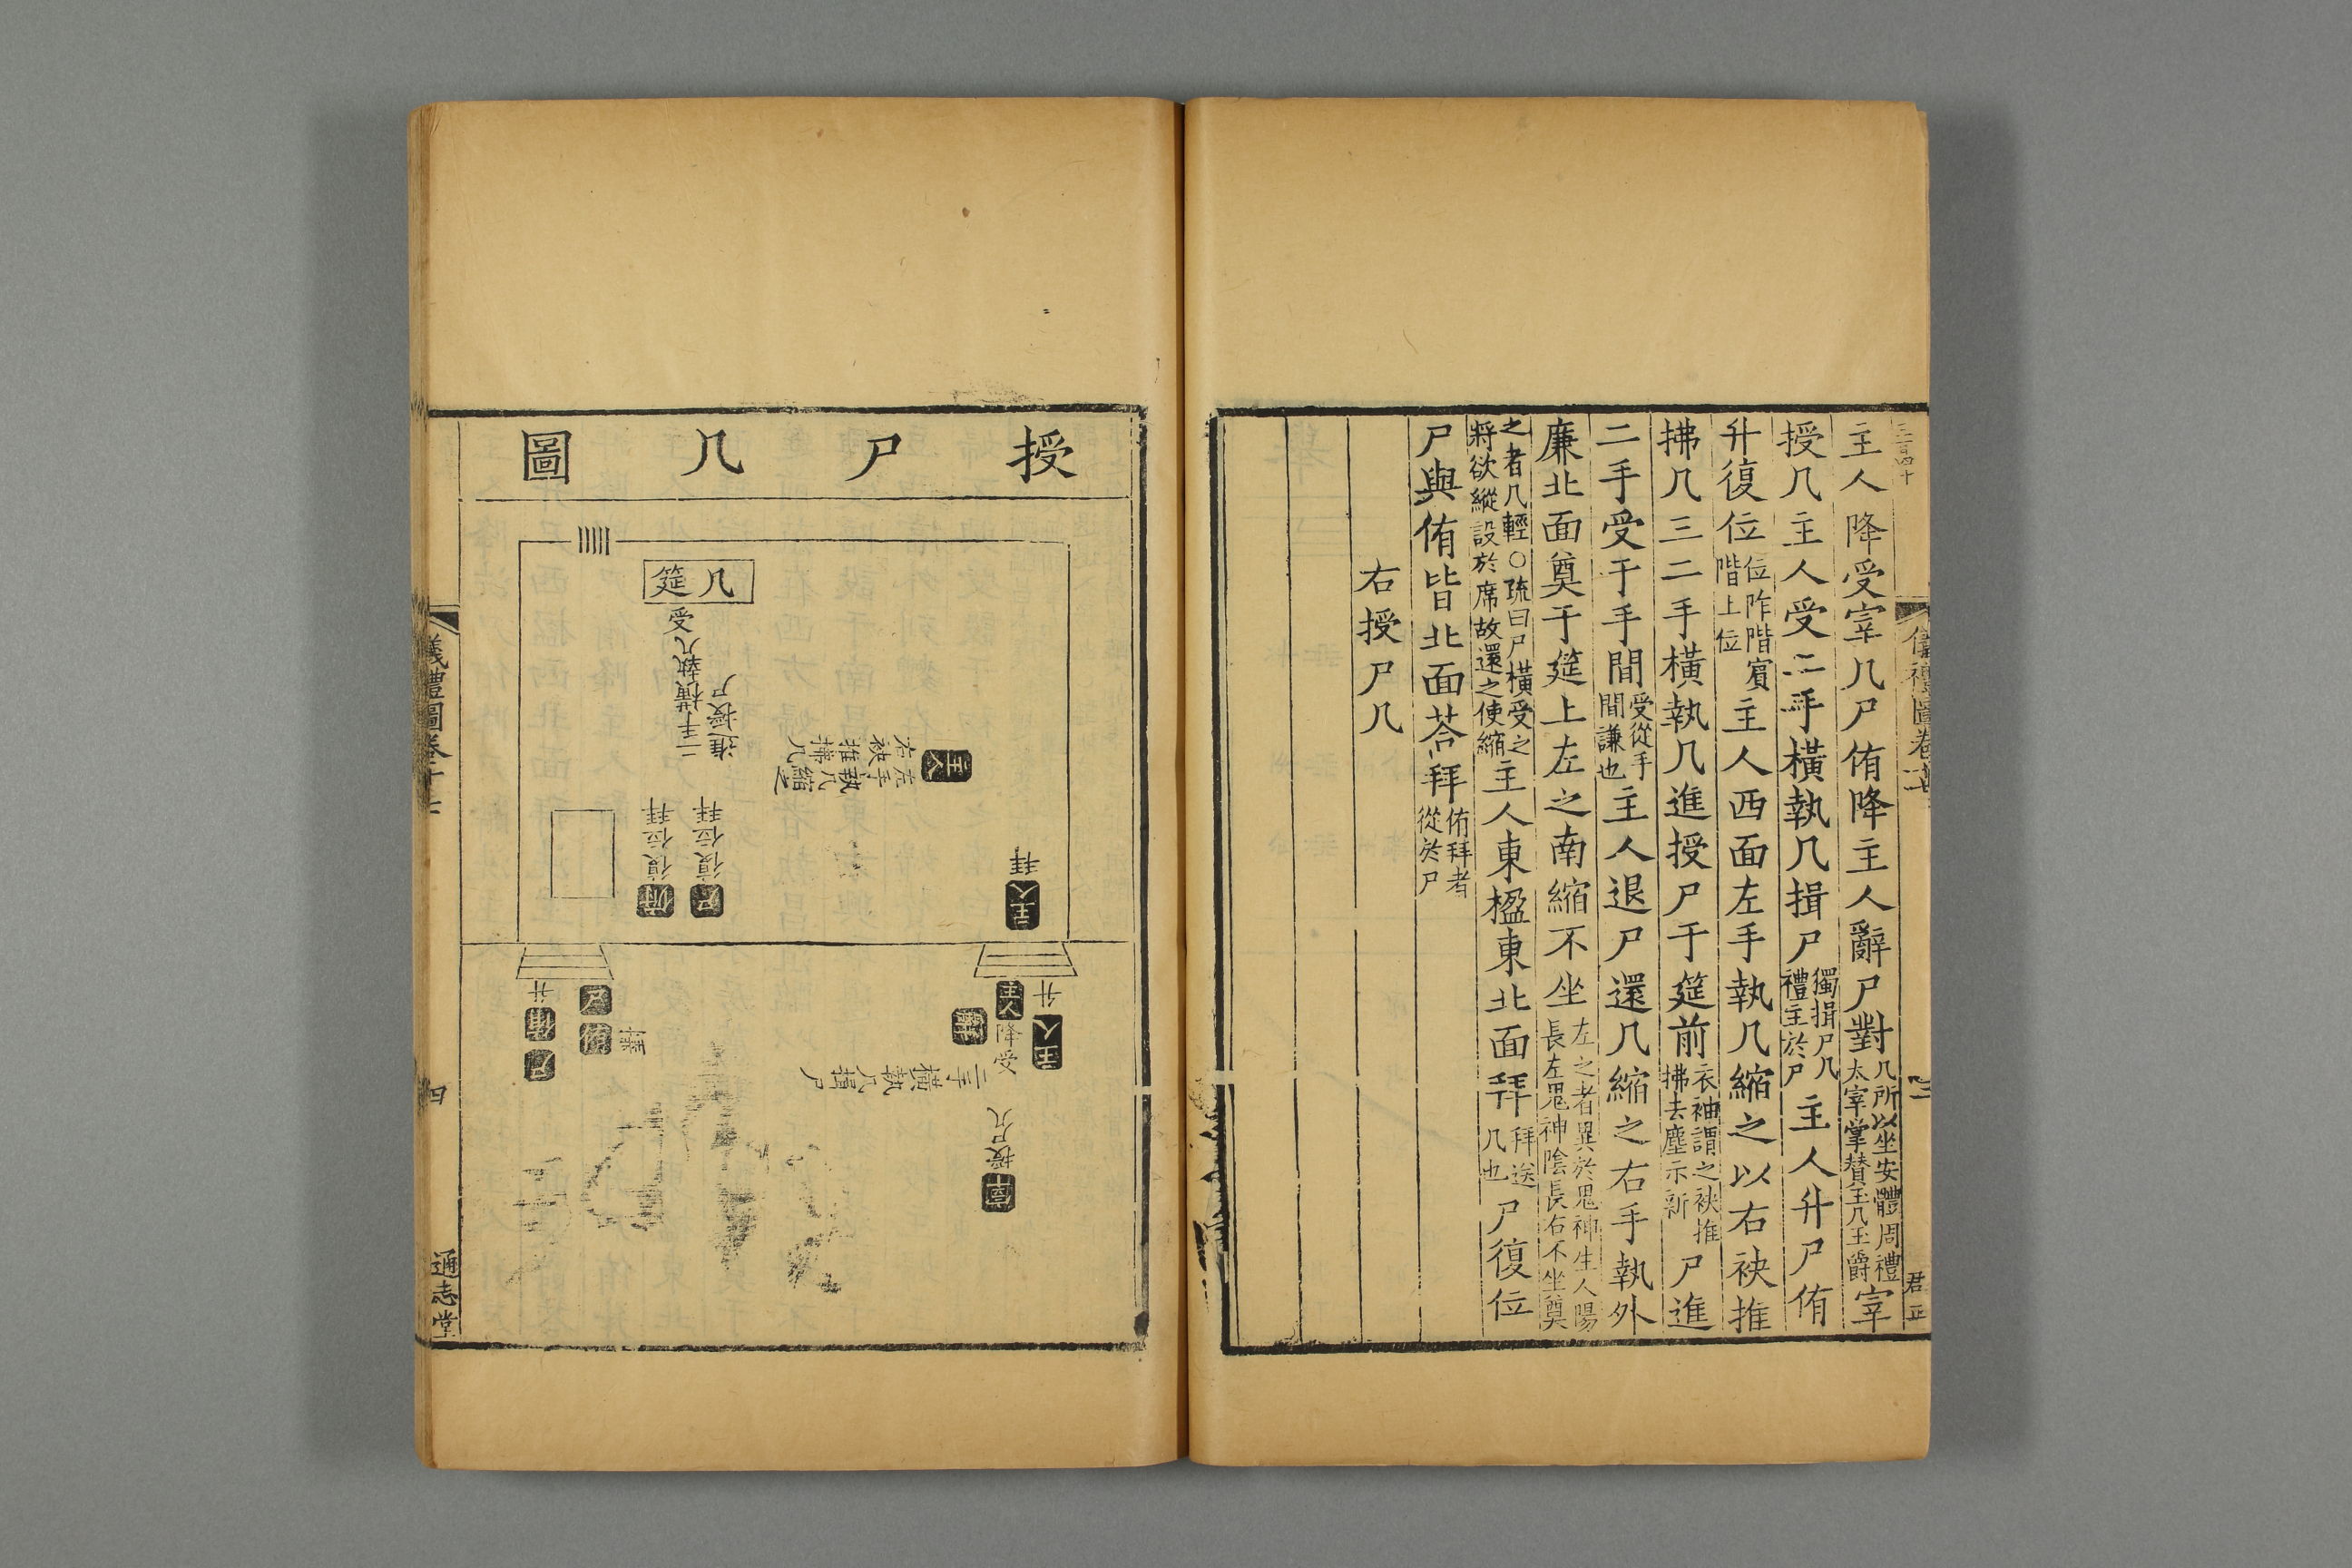 三百四十
儀禮圖卷十七
三
君正
主人降受宰几尸侑降主人辭尸對几所以坐安體周禮太宰掌贊玉几玉爵宰
授几主人受二手橫執几揖尸獨揖尸几禮主於尸主人升尸侑
升復位位阼階賓階上位主人西面左手執几縮之以右袂推
拂几三二手橫執几進授尸于筵前衣袖謂之袂推拂去塵示新尸進
二手受于手間受從手間謙也主人退尸還几縮之右手執外
廉北面奠于筵上左之南縮不坐左之者異於鬼神生人陽長左鬼神陰長右不坐奠
之者几輕○疏曰尸橫受之將欲縱設於席故還之使縮主人東楹東北面拜拜送几也尸復位
尸與侑皆北面荅拜侑拜者從於尸
右授尸几
授尸几圖
几筵
受
二手橫執几
進授尸
主人
左手執几縮之
右袂推拂几
尸復位拜
侑復位拜
主人拜
升
侑
尸
尸
侑
辭
主人
降受
主人
升
二手橫執几揖尸
宰授几
儀禮圖卷十七
四
通志堂